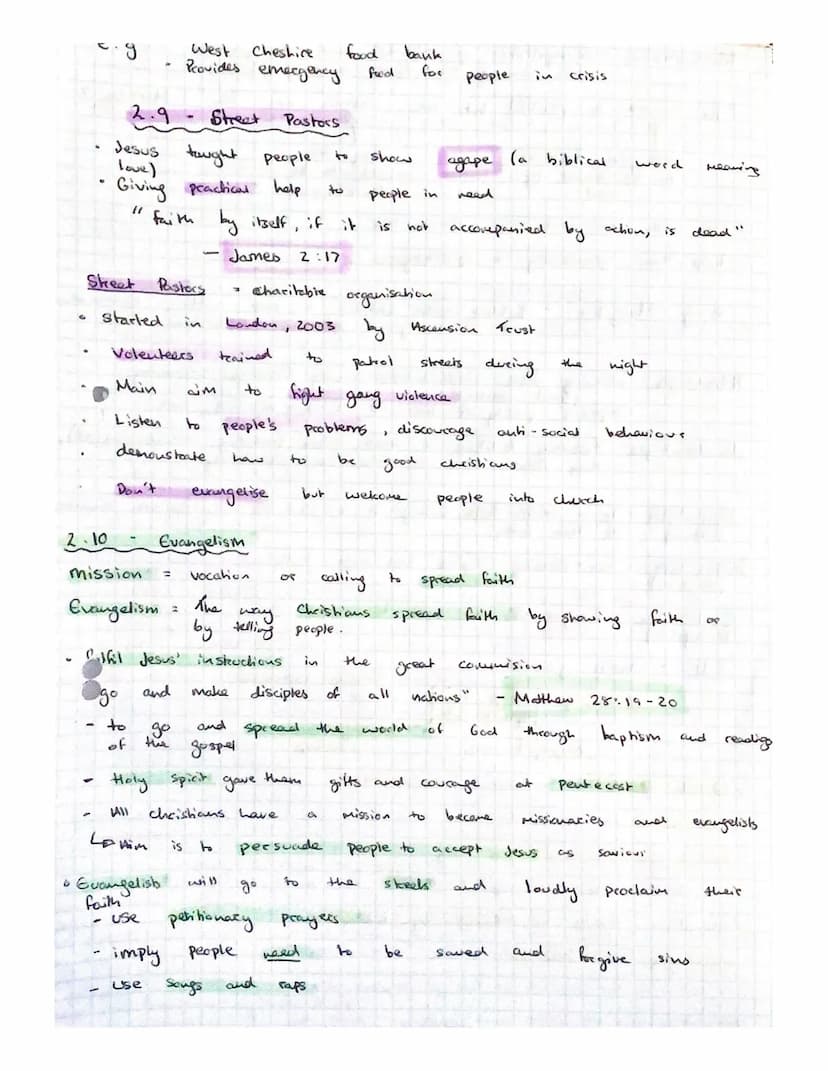 e.g West Cheshire food bank
- Provides emergency food for people in crisis
2.9 - Street Pastors
• Jesus taught people to show agape (a biblical word meaning
love)
• Giving practical help to people in need
"faith by itself, if it is not accompanied by action, is dead"
- James 2:17
Street Pastors = charitable organisation
• started in London, 2003 by Ascension Trust
• Volenteers trained to patrol streets during the night
• Main aim to fight gang violence
• Listen to people's problems, discourage anti-social behaviour
• demonstrate how to be good christians
Don't evangelise but welcome people into church
2.10 - Evangelism
mission = vocation or calling to spread faith
Evangelism = The way Christians spread faith by showing faith or
by telling people.
• Fulfil Jesus' instructions in the great commision
go and make disciples of all nations" - Matthew 28:19-20
- to go and spread the world of God through baptism and reading
of the gospel
- Holy Spirit gave them gifts and courage at Pentecost
- All christians have a mission to become missionaries and evangelists
↳ Aim is to persuade people to accept Jesus as saviour
• Evangelists will go to the streets and loudly proclaim their
faith
- use petitionary prayers
- imply people need to be saved and forgive sins
- use songs and raps